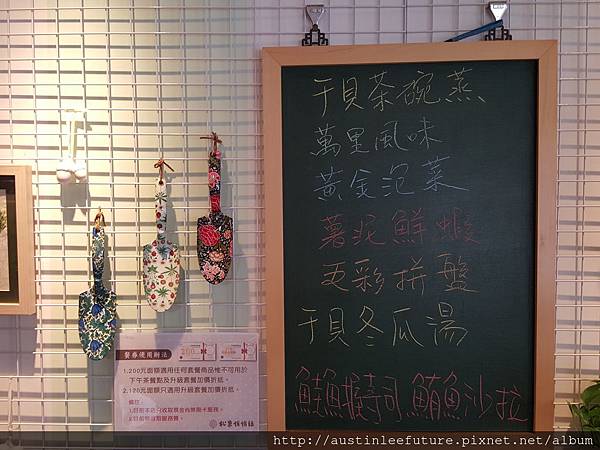 干貝茶碗蒸
萬里風味
黃金泡菜
薯泥鮮蝦
五彩拼盤
干貝冬瓜湯
鮭魚握壽司 鮪魚沙拉
餐券使用辦法
1.200元面額適用任何套餐商品惟不可用於
下午茶餐點及升級套餐加價折抵。
2.120元面額只適用升級套餐加價折抵。
備註:
http://austinleefuture.pixnet.net/album